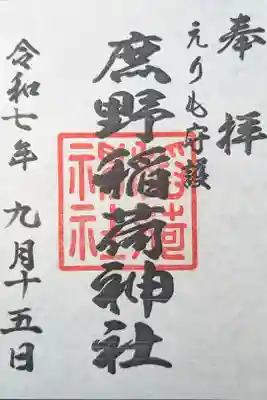 奉拝
えりも守護
庶野稲荷神社
令和七年 九月十五日